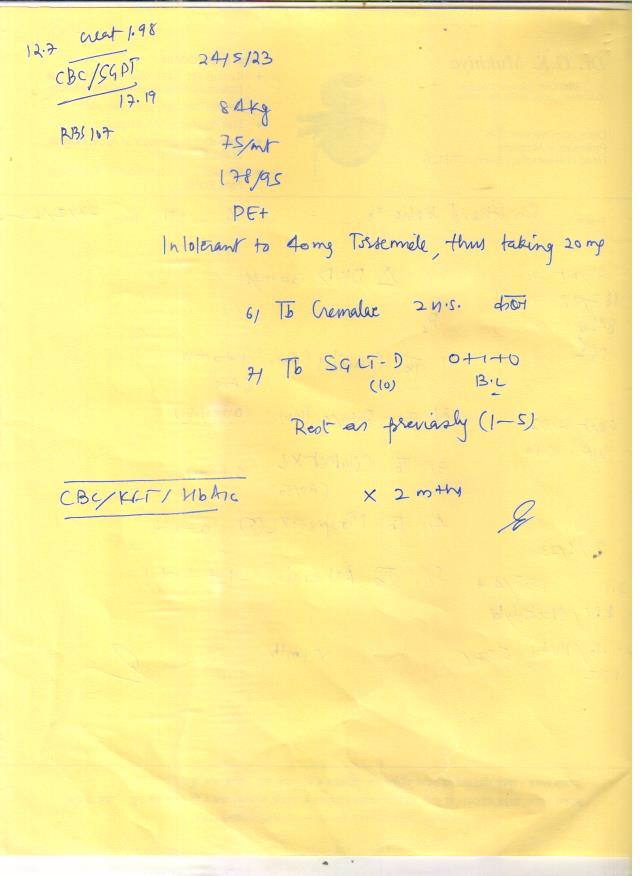 12.7 creat 1.98
CBC/SGPT
17.19
RBS 107
24/5/23
84kg
75/mt
178/95
PE+
Intolerant to 40mg, thus taking 20mg
6) Tb Cremalax 2 n.s.
7) Tb SGLT-D 0+1+0
(10) B.L
Rest as previously (1-5)
CBC/KFT/HbA1c x 2 mths